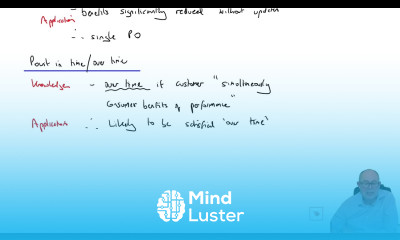 - benefits significantly reduced without updates
Application
∴ single PO
Point in time/over time
Knowledge - over time if customer "simultaneously
consume benefits of performance"
Application ∴ Likely to be satisfied "over time"
Mind
Luster